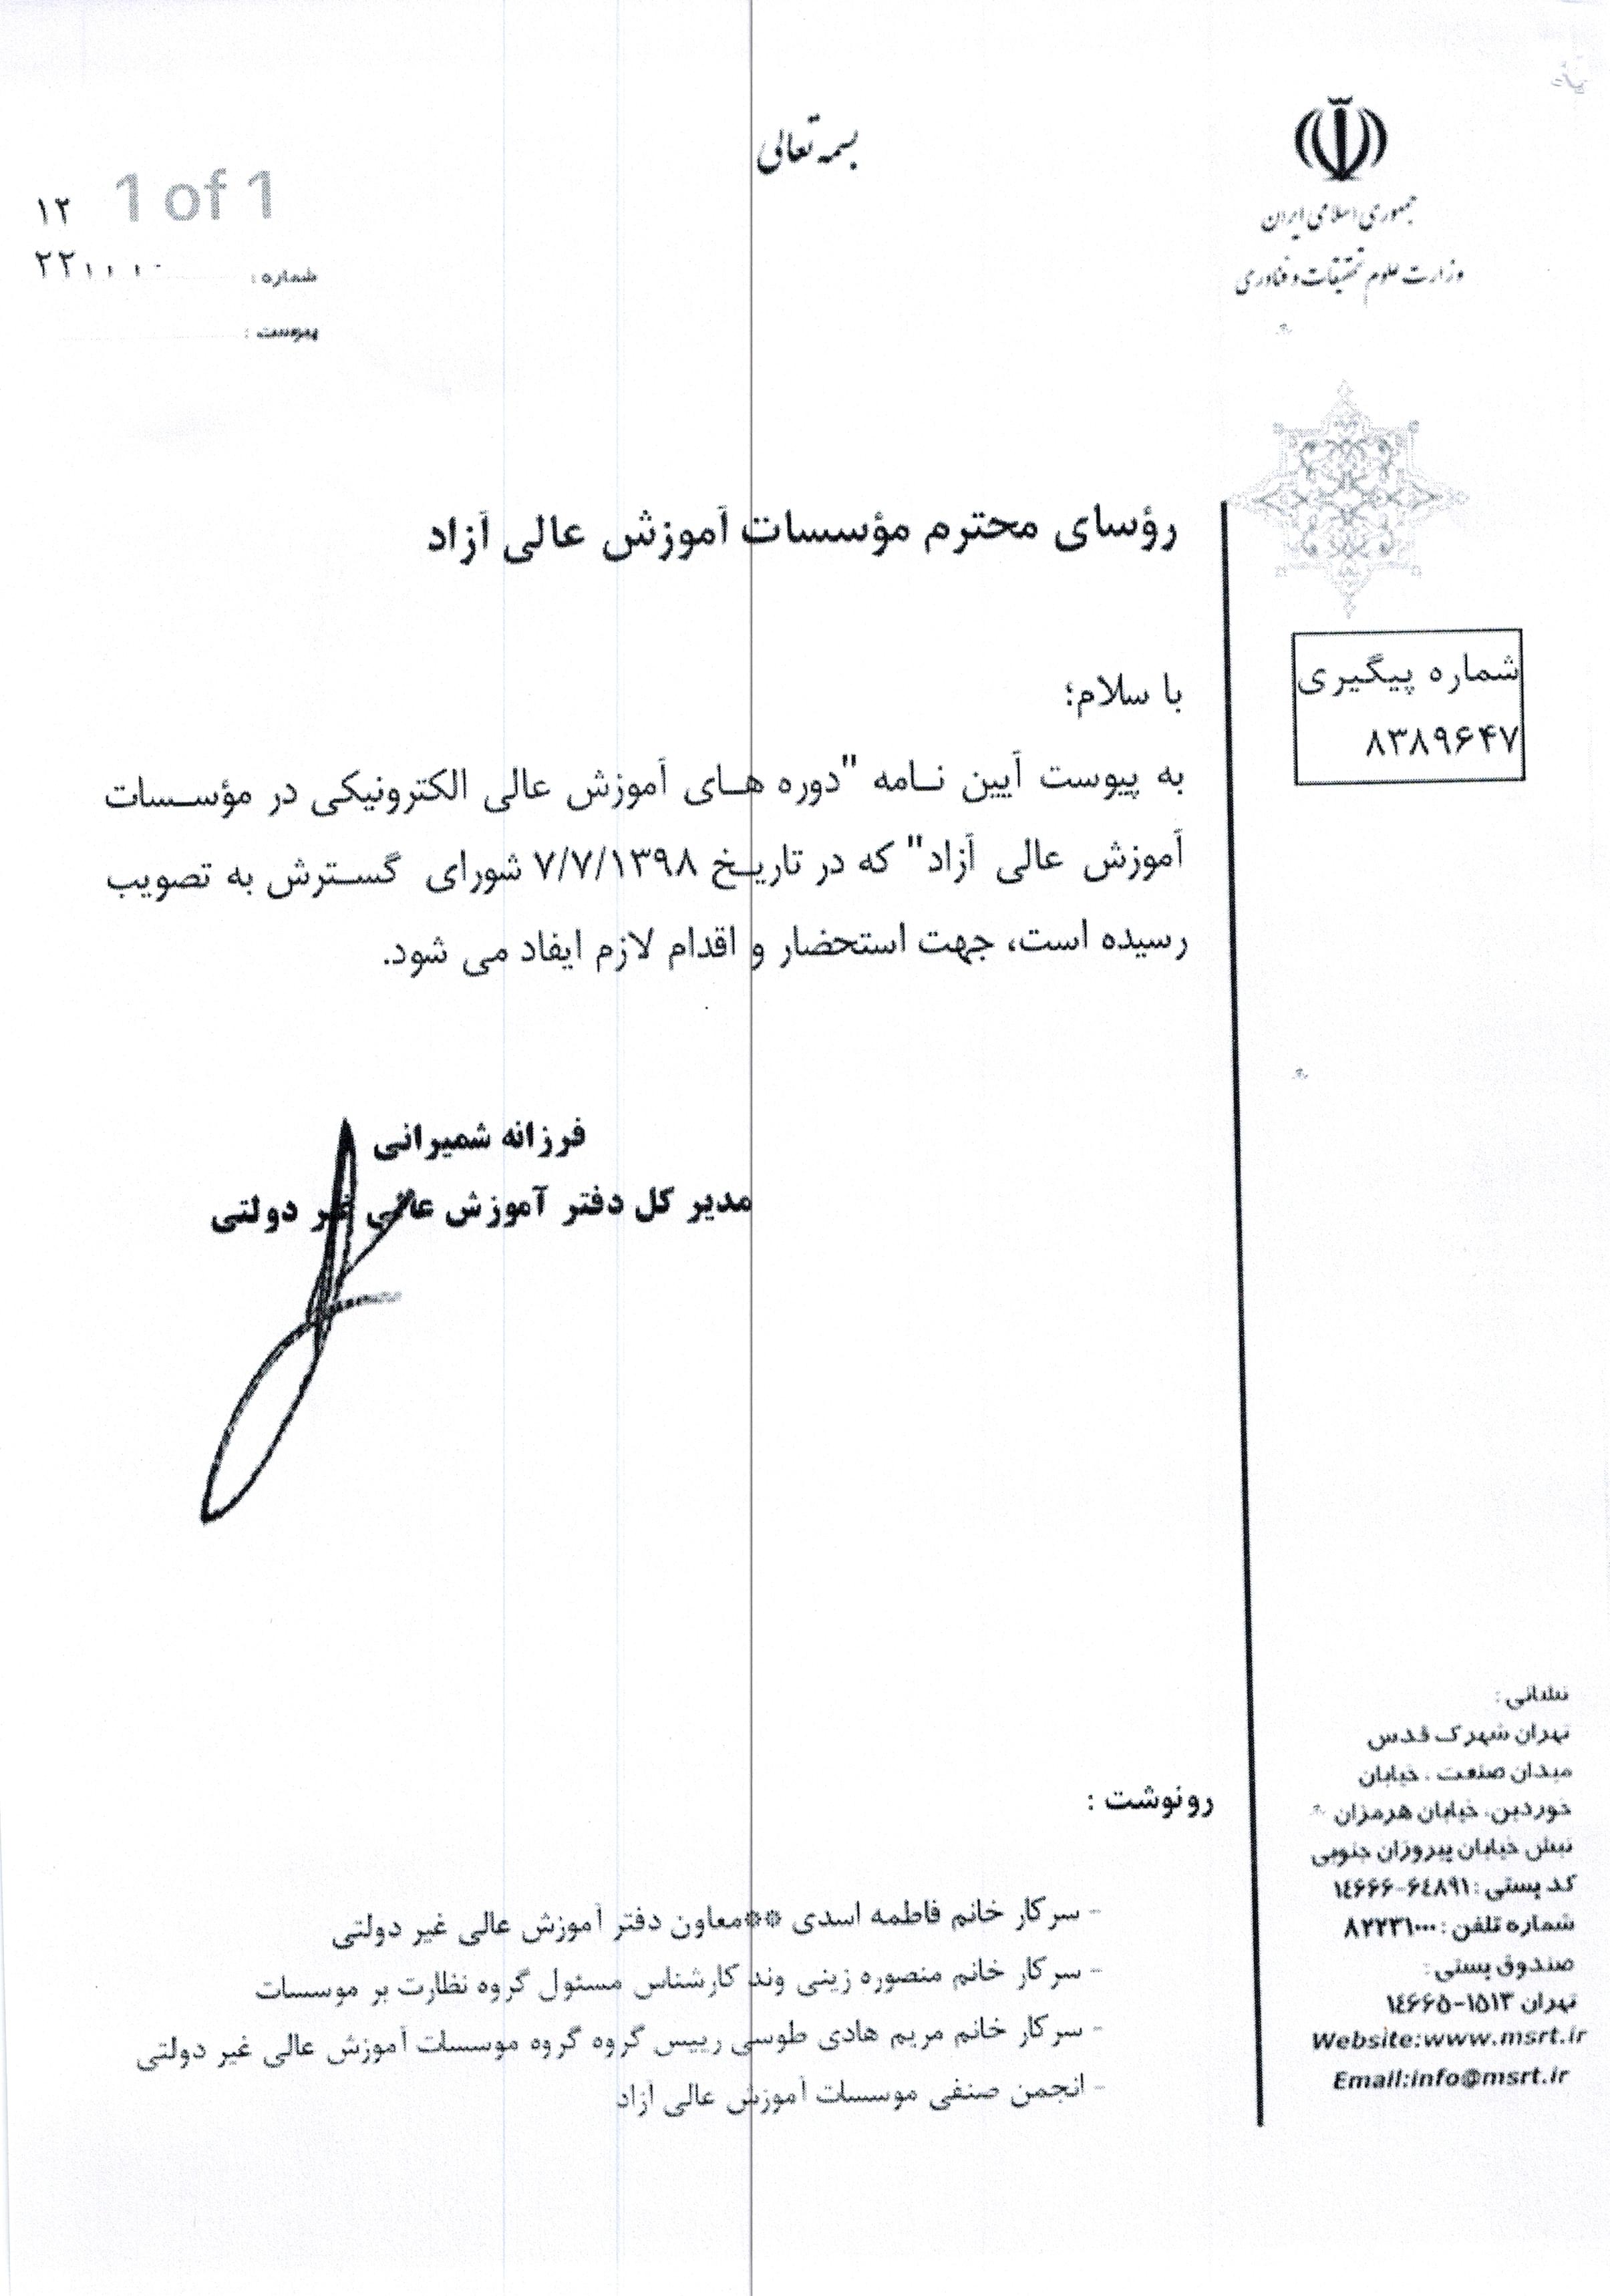 بسمه تعالی
جمهوری اسلامی ایران
وزارت علوم تحقیقات و فناوری
1 of 1
۱۲
شماره :
پیوست :
شماره پیگیری
۸۳۸۹۶۴۷
رؤسای محترم مؤسسات آموزش عالی آزاد
با سلام؛
به پیوست آیین نامه "دوره های آموزش عالی الکترونیکی در مؤسسات
آموزش عالی آزاد" که در تاریخ ۷/۷/۱۳۹۸ شورای گسترش به تصویب
رسیده است، جهت استحضار و اقدام لازم ایفاد می شود.
فرزانه شمیرانی
مدیر کل دفتر آموزش عالی غیر دولتی
رونوشت :
- سرکار خانم فاطمه اسدی **معاون دفتر آموزش عالی غیر دولتی
- سرکار خانم منصوره زینی وند کارشناس مسئول گروه نظارت بر موسسات
- سرکار خانم مریم هادی طوسی رییس گروه گروه موسسات آموزش عالی غیر دولتی
- انجمن صنفی موسسات آموزش عالی آزاد
نشانی :
تهران شهرک قدس
میدان صنعت ، خیابان
خوردین، خیابان هرمزان
نبش خیابان پیروزان جنوبی
کد پستی : ۶۴۸۹۱-۱۴۶۶۶
شماره تلفن : ۸۲۲۳۱۰۰۰
صندوق پستی :
تهران ۱۵۱۳-۱۴۶۶۵
Website:www.msrt.ir
Email:info@msrt.ir